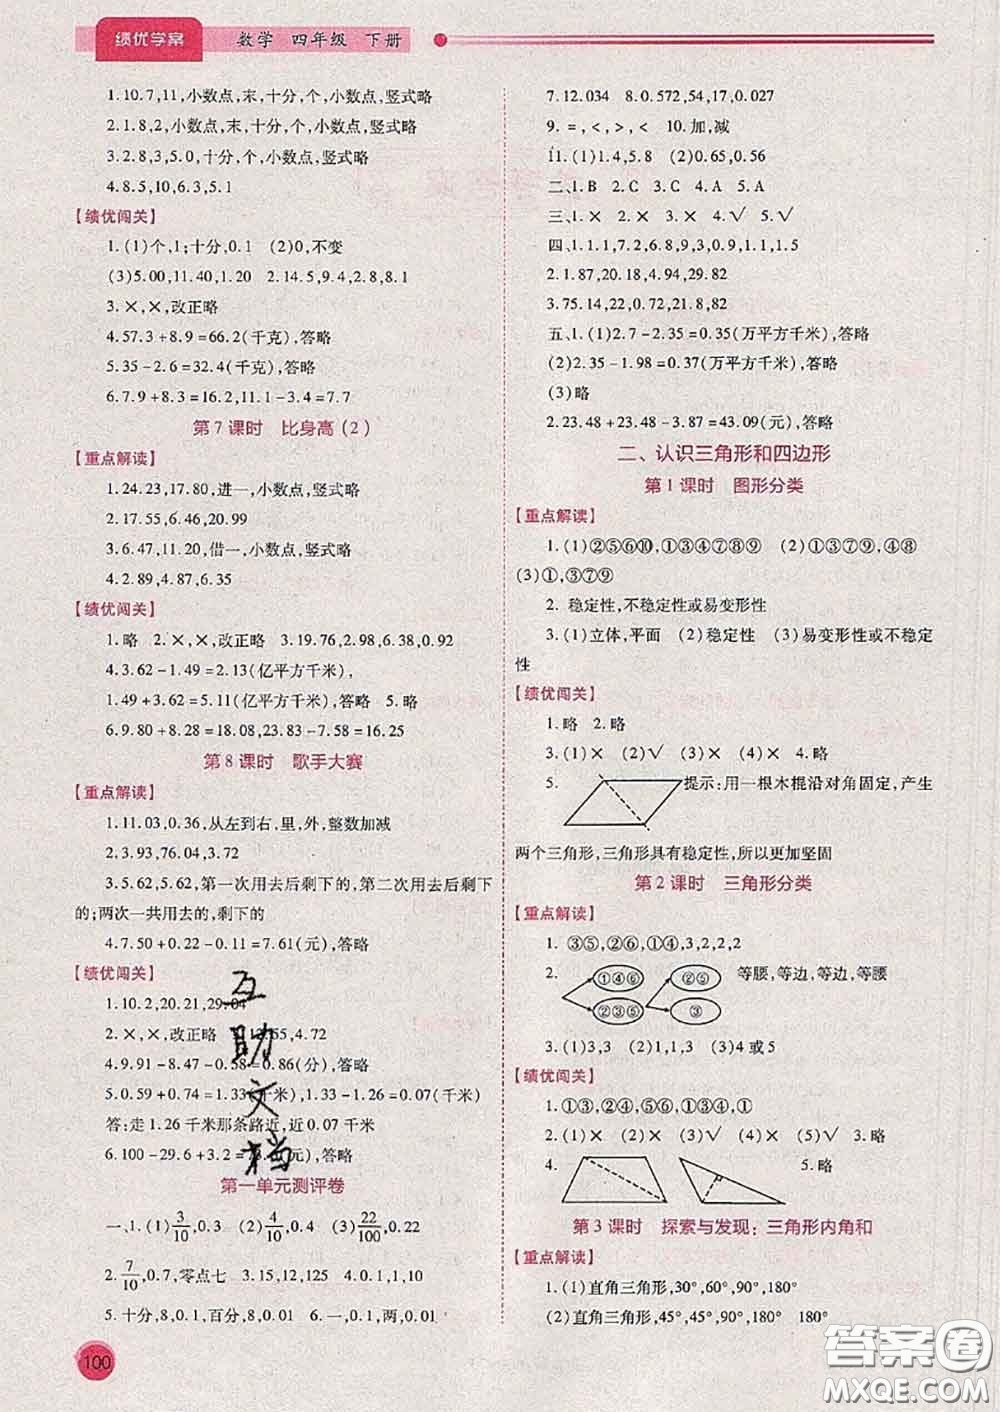 绩优学案
数学 四年级 下册
1.10.7,11,小数点,末,十分,个,小数点,竖式略
2.1.8,2,小数点,末,十分,个,小数点,竖式略
3.2.8,3,5.0,十分,个,小数点,竖式略
4.8.5,10,6.3,5.1
【绩优闯关】
1.(1)个,1;十分,0.1 (2)0,不变
(3)5.00,11.40,1.20 2.14.5,9.4,2.8,8.1
3.×,×,改正略
4.57.3+8.9=66.2(千克),答略
5.35-2.6=32.4(千克),答略
6.7.9+8.3=16.2,11.1-3.4=7.7
第7课时 比身高(2)
【重点解读】
1.24.23,17.80,进一,小数点,竖式略
2.17.55,6.46,20.99
3.6.47,11.20,借一,小数点,竖式略
4.2.89,4.87,6.35
【绩优闯关】
1.略 2.×,×,改正略 3.19.76,2.98,6.38,0.92
4.3.62-1.49=2.13(亿平方千米),
1.49+3.62=5.11(亿平方千米),答略 5.略
6.9.80+8.28=18.08,23.83-7.58=16.25
第8课时 歌手大赛
【重点解读】
1.11.03,0.36,从左到右,里,外,整数加减
2.3.93,76.04,3.72
3.5.62,5.62,第一次用去后剩下的,第二次用去后剩下
的;两次一共用去的,剩下的
4.7.50+0.22-0.11=7.61(元),答略
【绩优闯关】
1.10.2,20.21,29.04
2.×,×,改正略 55,4.72
4.9.91-8.47-0.58=0.86(分),答略
5.0.59+0.74=1.33(千米),1.33-1.26=0.07(千米)
答:走1.26千米那条路近,近0.07千米
6.100-29.6+3.2= (元),答略
互助文档
第一单元测评卷
一、1.(1)3/10,0.3 (2)4/10,0.4 (3)22/100,0.22
2.7/10,0.7,零点七 3.15,12,125 4.0.38
5.十分,8,0.1,百分,8,0.01 6.一,0.1,两,0.01
100
7.12.034 8.0.572,54,17,0.027
9. =,<,>,< 10.加,减
11.(1)1.4,5.8 (2)0.65,0.56
二、1.B 2.C 3.A 4.C 5.A
三、1.× 2.× 3.× 4.√ 5.√
四、1.1.1,7.2,6.8,9,3,0.9,1.1,1.5
2.1.87,20.18,4.94,29.82
3.75.14,22,0.72,21.8,82
五、1.(1)2.7-2.35=0.35(万平方千米),答略
(2)2.35-1.98=0.37(万平方千米),答略
(3)略
2.23.48+23.48-3.87=43.09(元),答略
二、认识三角形和四边形
第1课时 图形分类
【重点解读】
1.(1)②⑤⑥⑩,①③④⑦⑧⑨ (2)①③⑦⑨,④⑧
(3)①,③⑦⑨
2. 稳定性,不稳定性或易变形性
3.(1)立体,平面 (2)稳定性 (3)易变形性或不稳定
性
【绩优闯关】
1.略 2.略
3.(1)× (2)√ (3)× (4)× 4.略
5. 提示:用一根木棍沿对角固定,产生
两个三角形,三角形具有稳定性,所以更加坚固
第2课时 三角形分类
【重点解读】
1. ③⑤,②⑥,①④,3,2,2,2
2. ①④⑥ ②⑤ 等腰,等边,等边,等腰
②③⑤ ③
3.(1)3,3 (2)1,4 (3)4或5
【绩优闯关】
1.①③,②⑤,④⑥,①③④,①
2.(1)× (2)× (3)√ (4)× (5)√ 3.略
4. 5.略
第3课时 探索与发现:三角形内角和
【重点解读】
1.(1)直角三角形,30°,60°,90°,180°
(2)直角三角形,45°,45°,90°,180° 180°
答案圈
MXQE.COM